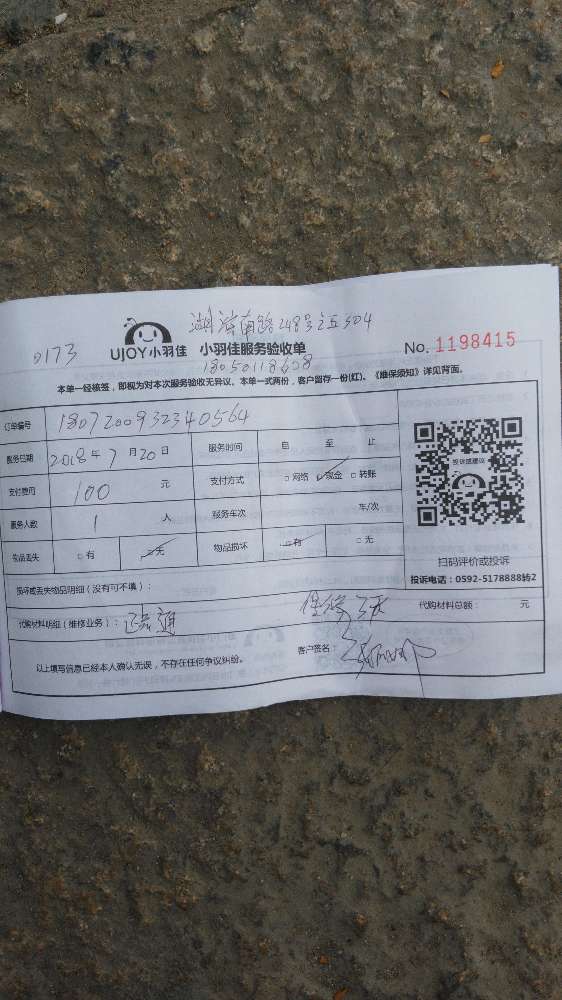 湖滨南路248号之五504
0173
UJOY小羽佳 小羽佳服务验收单 No. 1198415
18050118658
本单一经核签，即视为对本次服务验收无异议。本单一式两份，客户留存一份(红)。《维保须知》详见背面。
订单编号 1807200932340564
服务日期 2018年7月20日 服务时间 自 至 止
支付费用 100 元 支付方式 □网络 □现金 □转账
服务人数 1 人 服务车次 车/次
物品丢失 □有 □无 物品损坏 □有 □无
投诉或建议
扫码评价或投诉
投诉电话：0592-5178888转2
损坏或丢失物品明细（没有可不填）：
代购材料明细（维修业务）： 疏通 保修 天 代购材料总额： 元
以上填写信息已经本人确认无误，不存在任何争议纠纷。 客户签名：